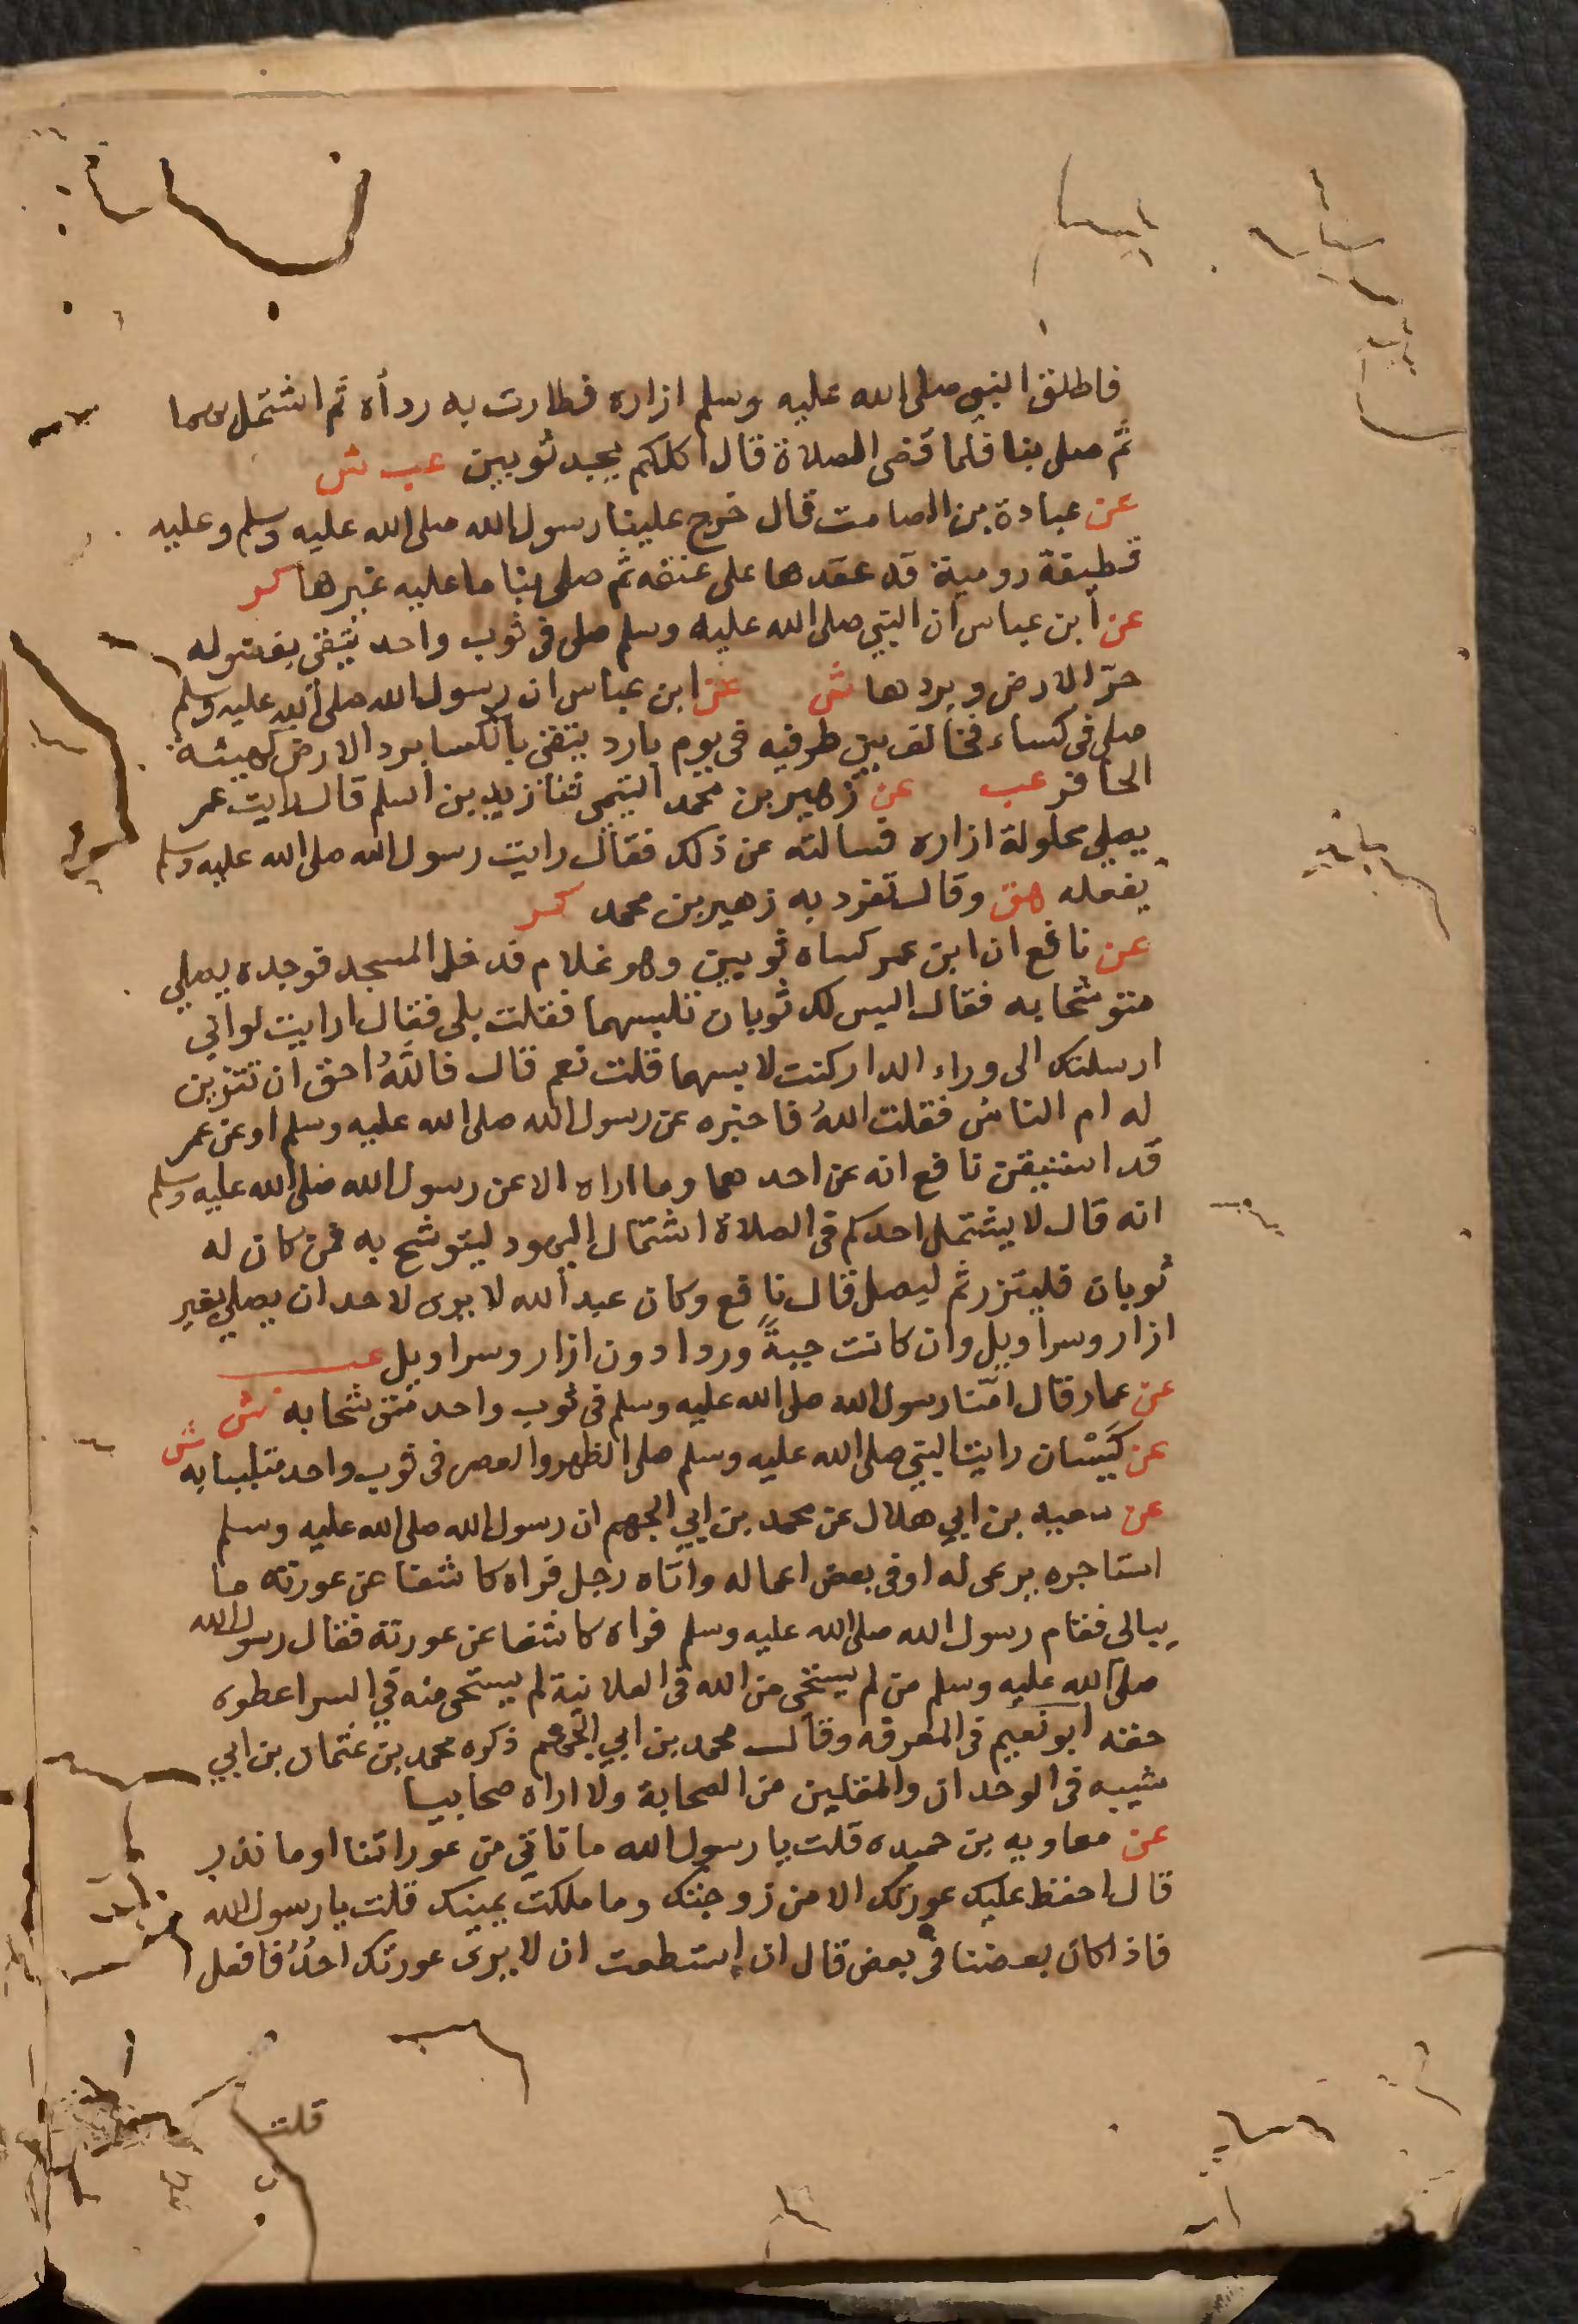 فاطلق النبي صلى الله عليه وسلم ازاره فطارت به رداه ثم اشتمل بهما
ثم صلى بنا فلما قضى الصلاة قال اكلكم يجد ثوبين عب ش
عن عبادة بن الصامت قال خرج علينا رسول الله صلى الله عليه وسلم وعليه
قطيفة رومية قد عقدها على عنقه ثم صلى بنا ما عليه غيرها كر
عن ابن عباس ان النبي صلى الله عليه وسلم صلى فى ثوب واحد يتقى بفضوله
حرّ الارض وبردها ش عن ابن عباس ان رسول الله صلى الله عليه وسلم
صلى فى كساء فخالف بين طرفيه فى يوم بارد يتقى بالكسا برد الارض كهيئة
الحافر عب عن زهير بن محمد التيمى ثنا زيد بن اسلم قال رايت عمر
يصلى محلولة ازاره فسالته عن ذلك فقال رايت رسول الله صلى الله عليه وسلم
يفعله هق وقال تفرد به زهير بن محمد كر
عن نافع ان ابن عمر كساه ثوبين وهو غلام فدخل المسجد فوجده يصلي
متوشحا به فقال اليس لك ثوبان تلبسهما فقلت بلى فقال ارايت لو انى
ارسلتك الى وراء الدار كنت لابسهما قلت نعم قال فاللهُ احق ان تتزين
له ام الناس فقلت اللهُ فاخبره عن رسول الله صلى الله عليه وسلم او عن عمر
قد استيقن نافع انه عن احدهما وما اراه الا عن رسول الله صلى الله عليه وسلم
انه قال لا يشتمل احدكم فى الصلاة اشتمال اليهود ليتوشح به فمن كان له
ثوبان فليتزر ثم ليصل قال نافع وكان عبد الله لا يرى لاحد ان يصلي بغير
ازار وسراويل وان كانت جبةً وردا دون ازار وسراويل عب
عن عمار قال امّنا رسول الله صلى الله عليه وسلم فى ثوب واحد متوشحا به ش
عن كَيْسَان رايت النبي صلى الله عليه وسلم صلى الظهر والعصر فى ثوب واحد متلببا به ش
عن سعيد بن ابي هلال عن محمد بن ابي الجهم ان رسول الله صلى الله عليه وسلم
استاجره يرعى له او فى بعض اعماله واتاه رجل فراه كاشفا عن عورته ما
يبالى فقام رسول الله صلى الله عليه وسلم فراه كاشفا عن عورته فقال رسول الله
صلى الله عليه وسلم من لم يستحى من الله فى العلانية لم يستحى منه في السر اعطوه
حقه ابو نعيم فى المعرفه وقال محمد بن ابي الجهم ذكره محمد بن عثمان بن ابي
شيبه فى الوحدان والمقلين من الصحابة ولا اراه صحابيا
عن معاويه بن حيده قلت يا رسول الله ما ناتي من عوراتنا او ما نذر
قال احفظ عليك عورتك الا من زوجتك وما ملكت يمينك قلت يا رسول الله
فاذا كان بعضنا فى بعض قال ان استطعت ان لا يرى عورتك احدٌ فافعل
قلت